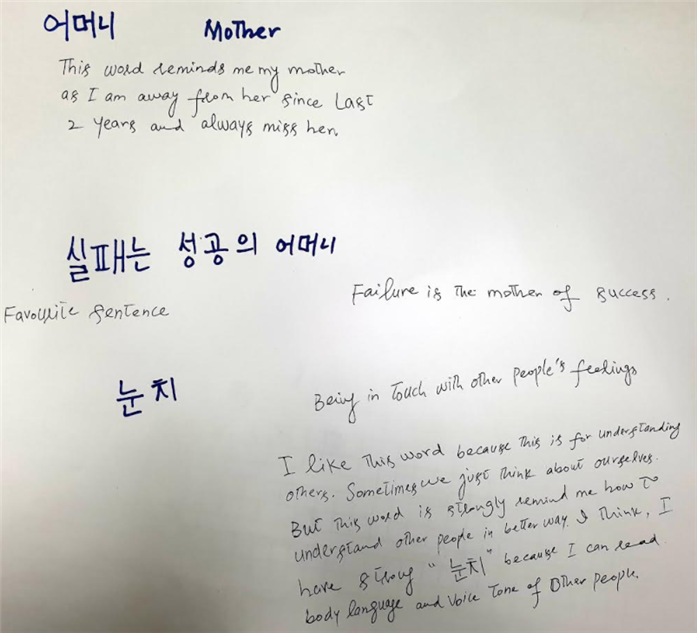 어머니 Mother
This word reminds me my mother
as I am away from her since Last
2 years and always miss her.
실패는 성공의 어머니
Favourite Sentence
Failure is the mother of success.
눈치
Being in Touch with other people's feelings
I like This word because this is for understanding
others. Sometimes we just Think about ourselves.
But This word is strongly remind me how to
understand other people in better way. I Think, I
have strong "눈치" because I can read
body language and Voice Tone of Other people.